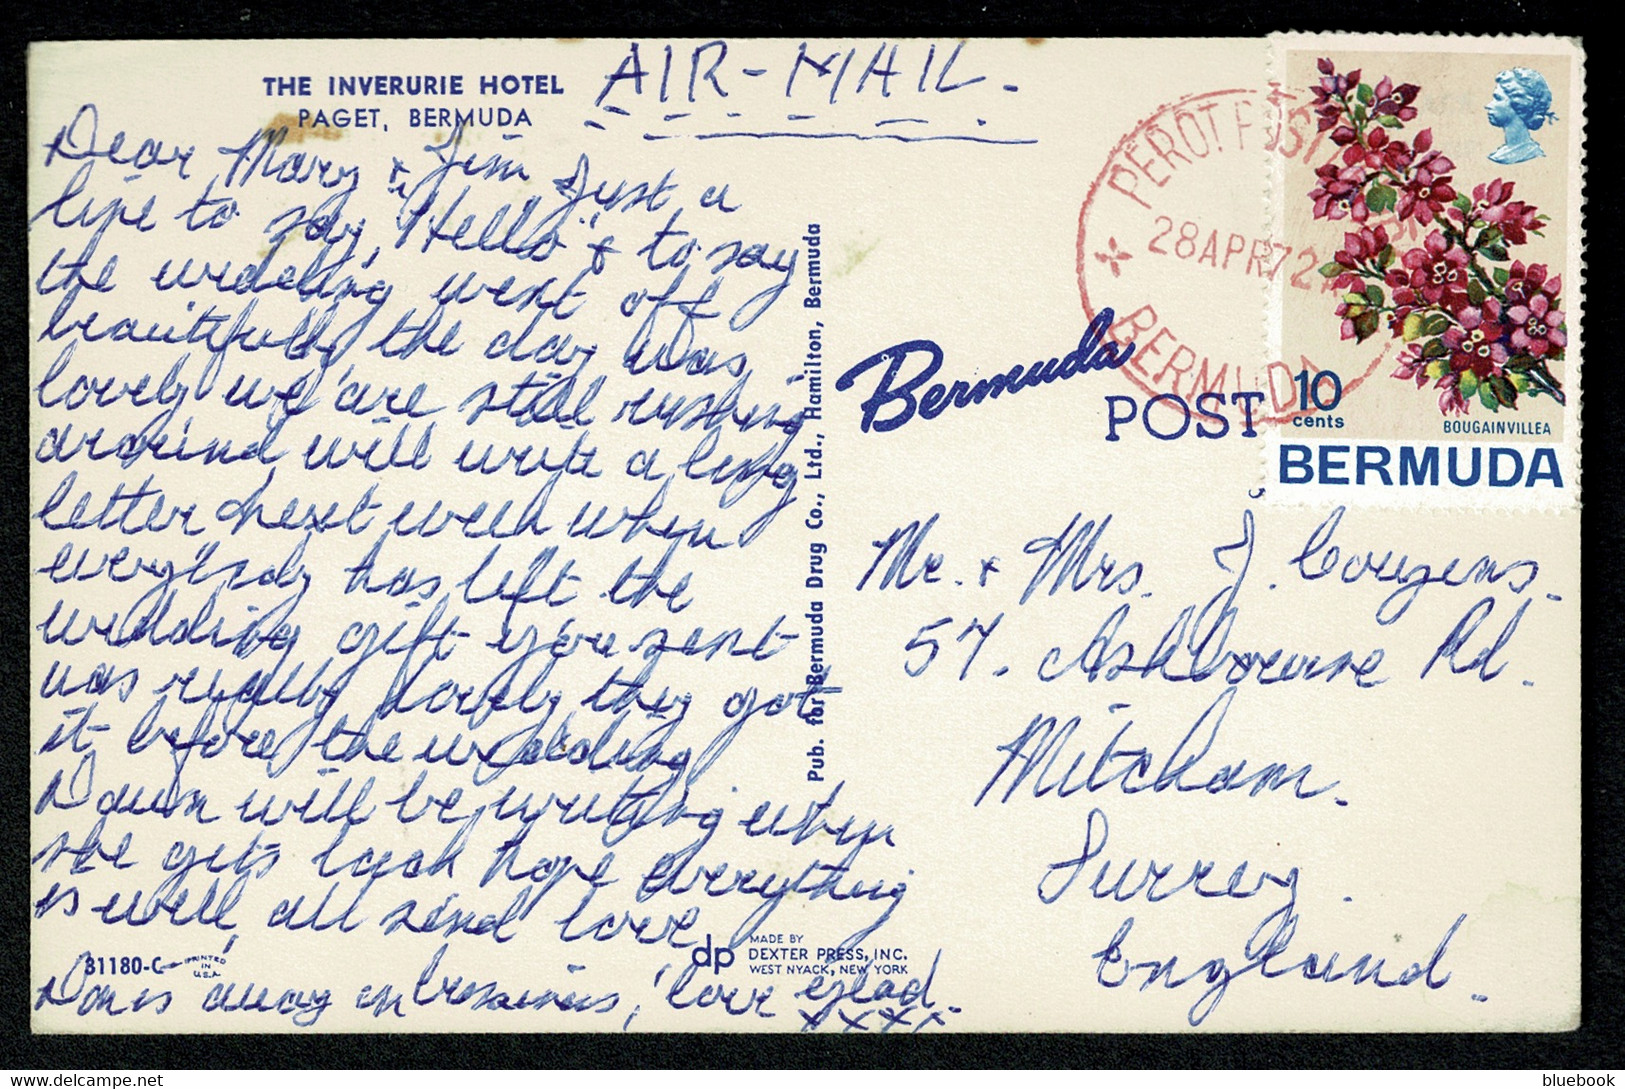 THE INVERURIE HOTEL
PAGET, BERMUDA
AIR-MAIL.
Dear Mary & Jim Just a
line to say, "Hello" & to say
the wedding went off
beautifully the day was
lovely we are still rushing
around, will write a long
letter next week when
everybody has left the
wedding gift you sent
was really lovely they got
it before the wedding
Dawn will be writing when
she gets back hope everything
is well, all send love,
Don is away on business, love Glad.
xxxx
31180-C
PRINTED
IN
U.S.A.
dp
MADE BY
DEXTER PRESS, INC.
WEST NYACK, NEW YORK
Pub. for Bermuda Drug Co., Ltd., Hamilton, Bermuda
Bermuda
POST
PEROT POST
28 APR 72
BERMUDA
10
cents
BOUGAINVILLEA
BERMUDA
Mr. & Mrs. J. Couzens.
57. Ashbourne Rd.
Mitcham.
Surrey.
England.
bluebook